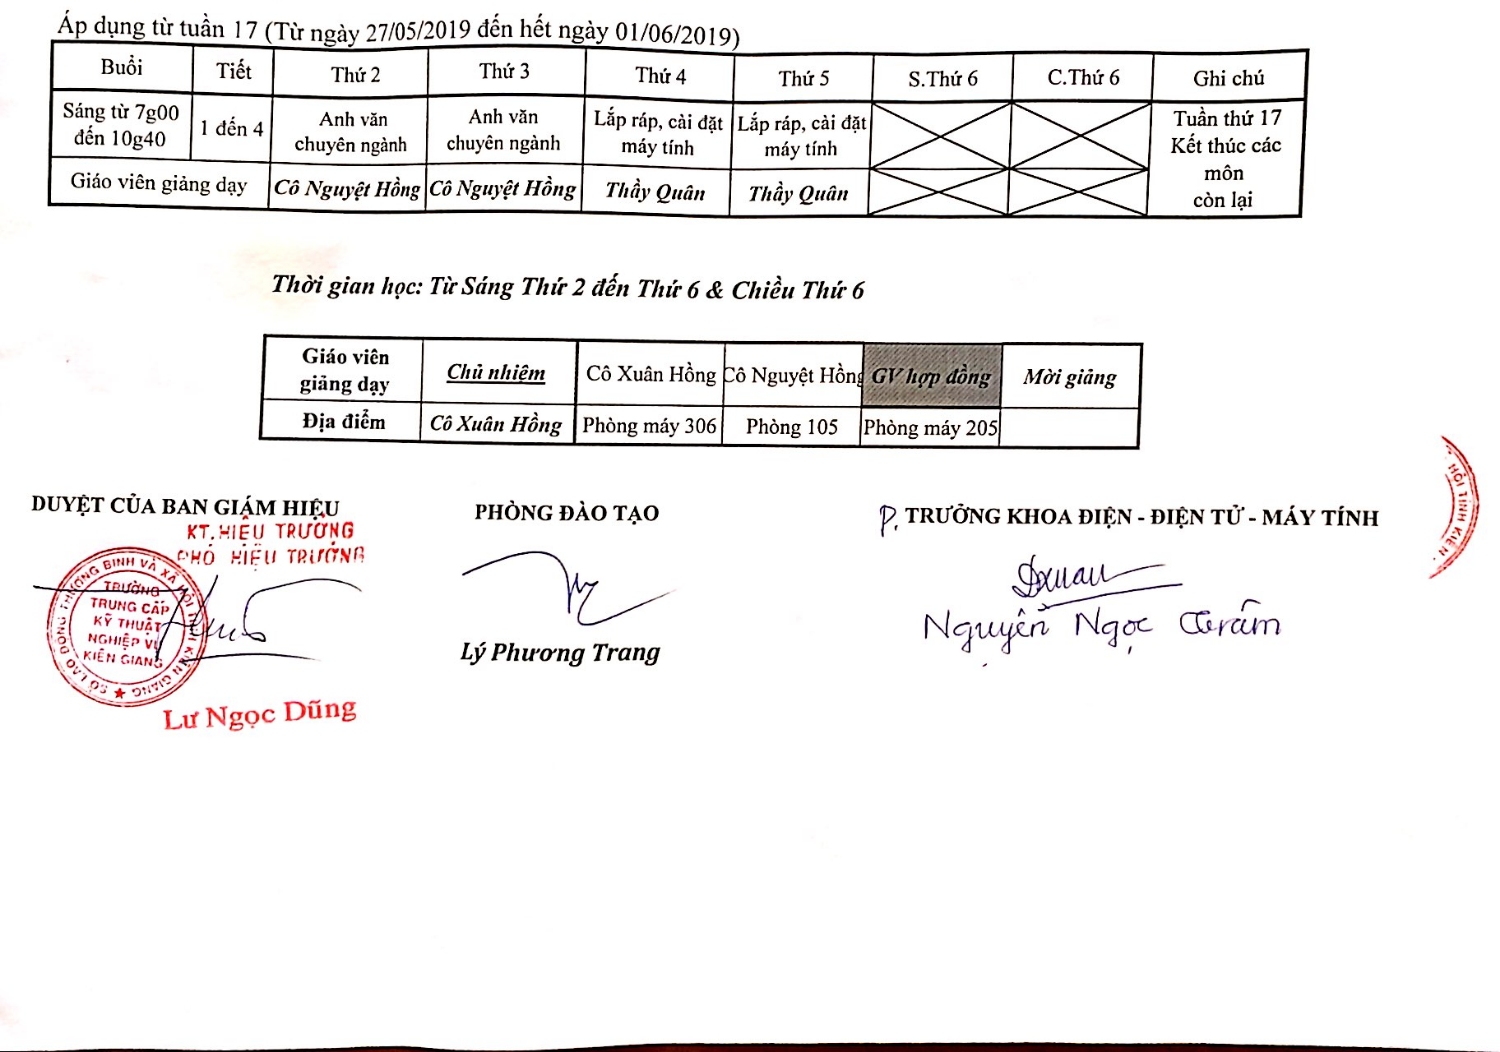 Áp dụng từ tuần 17 (Từ ngày 27/05/2019 đến hết ngày 01/06/2019)
Buổi Tiết Thứ 2 Thứ 3 Thứ 4 Thứ 5 S.Thứ 6 C.Thứ 6 Ghi chú
Sáng từ 7g00 Anh văn Anh văn Lắp ráp, cài đặt Lắp ráp, cài đặt Tuần thứ 17
đến 10g40 1 đến 4 chuyên ngành chuyên ngành máy tính máy tính Kết thúc các
môn
Giáo viên giảng dạy Cô Nguyệt Hồng Cô Nguyệt Hồng Thầy Quân Thầy Quân còn lại
Thời gian học: Từ Sáng Thứ 2 đến Thứ 6 & Chiều Thứ 6
Giáo viên
giảng dạy Chủ nhiệm Cô Xuân Hồng Cô Nguyệt Hồng GV hợp đồng Mời giảng
Địa điểm Cô Xuân Hồng Phòng máy 306 Phòng 105 Phòng máy 205
DUYỆT CỦA BAN GIÁM HIỆU PHÒNG ĐÀO TẠO P. TRƯỞNG KHOA ĐIỆN - ĐIỆN TỬ - MÁY TÍNH
KT. HIỆU TRƯỞNG
PHÓ HIỆU TRƯỞNG
SỞ LAO ĐỘNG THƯƠNG BINH VÀ XÃ HỘI TỈNH KIÊN GIANG
TRƯỜNG
TRUNG CẤP
KỸ THUẬT
NGHIỆP VỤ
KIÊN GIANG
HỘI TỈNH KIÊN
Nguyễn Ngọc Trâm
Lý Phương Trang
Lư Ngọc Dũng